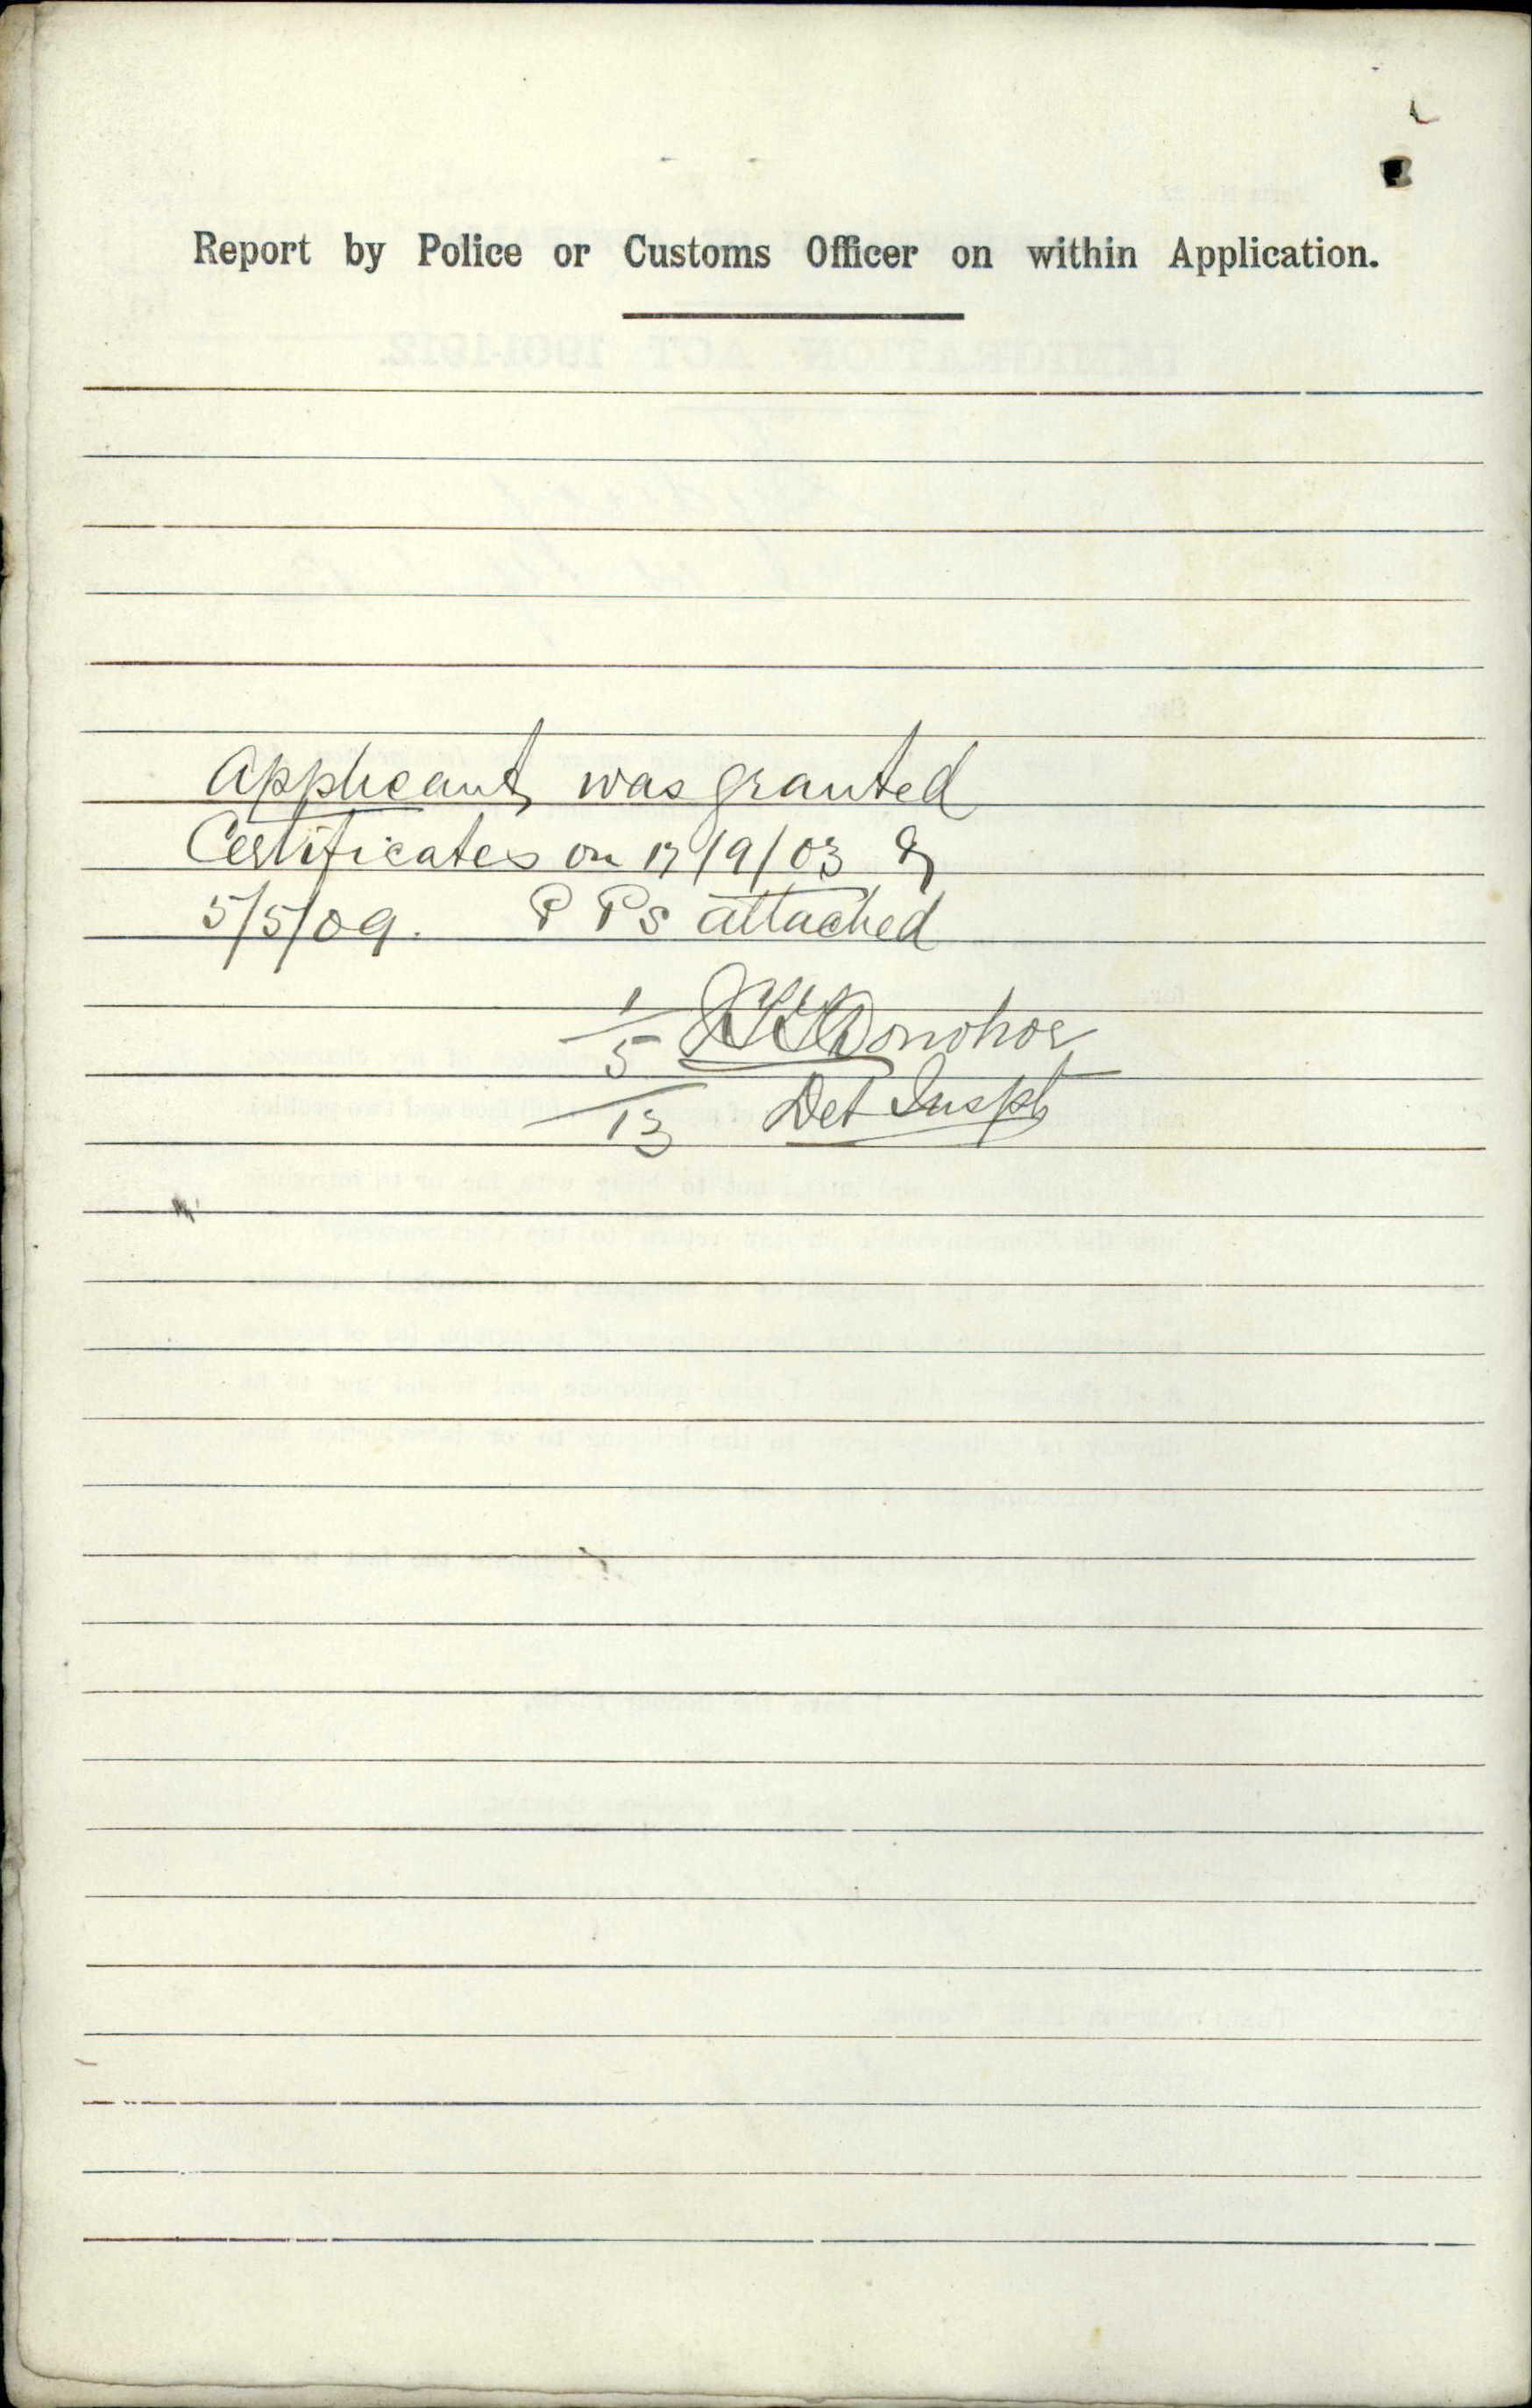 Report by Police or Customs Officer on within Application.
Applicant was granted
Certificates on 17/9/03 &
5/5/09. P Ps attached
1/5/13 Donohoe
Det Inspr